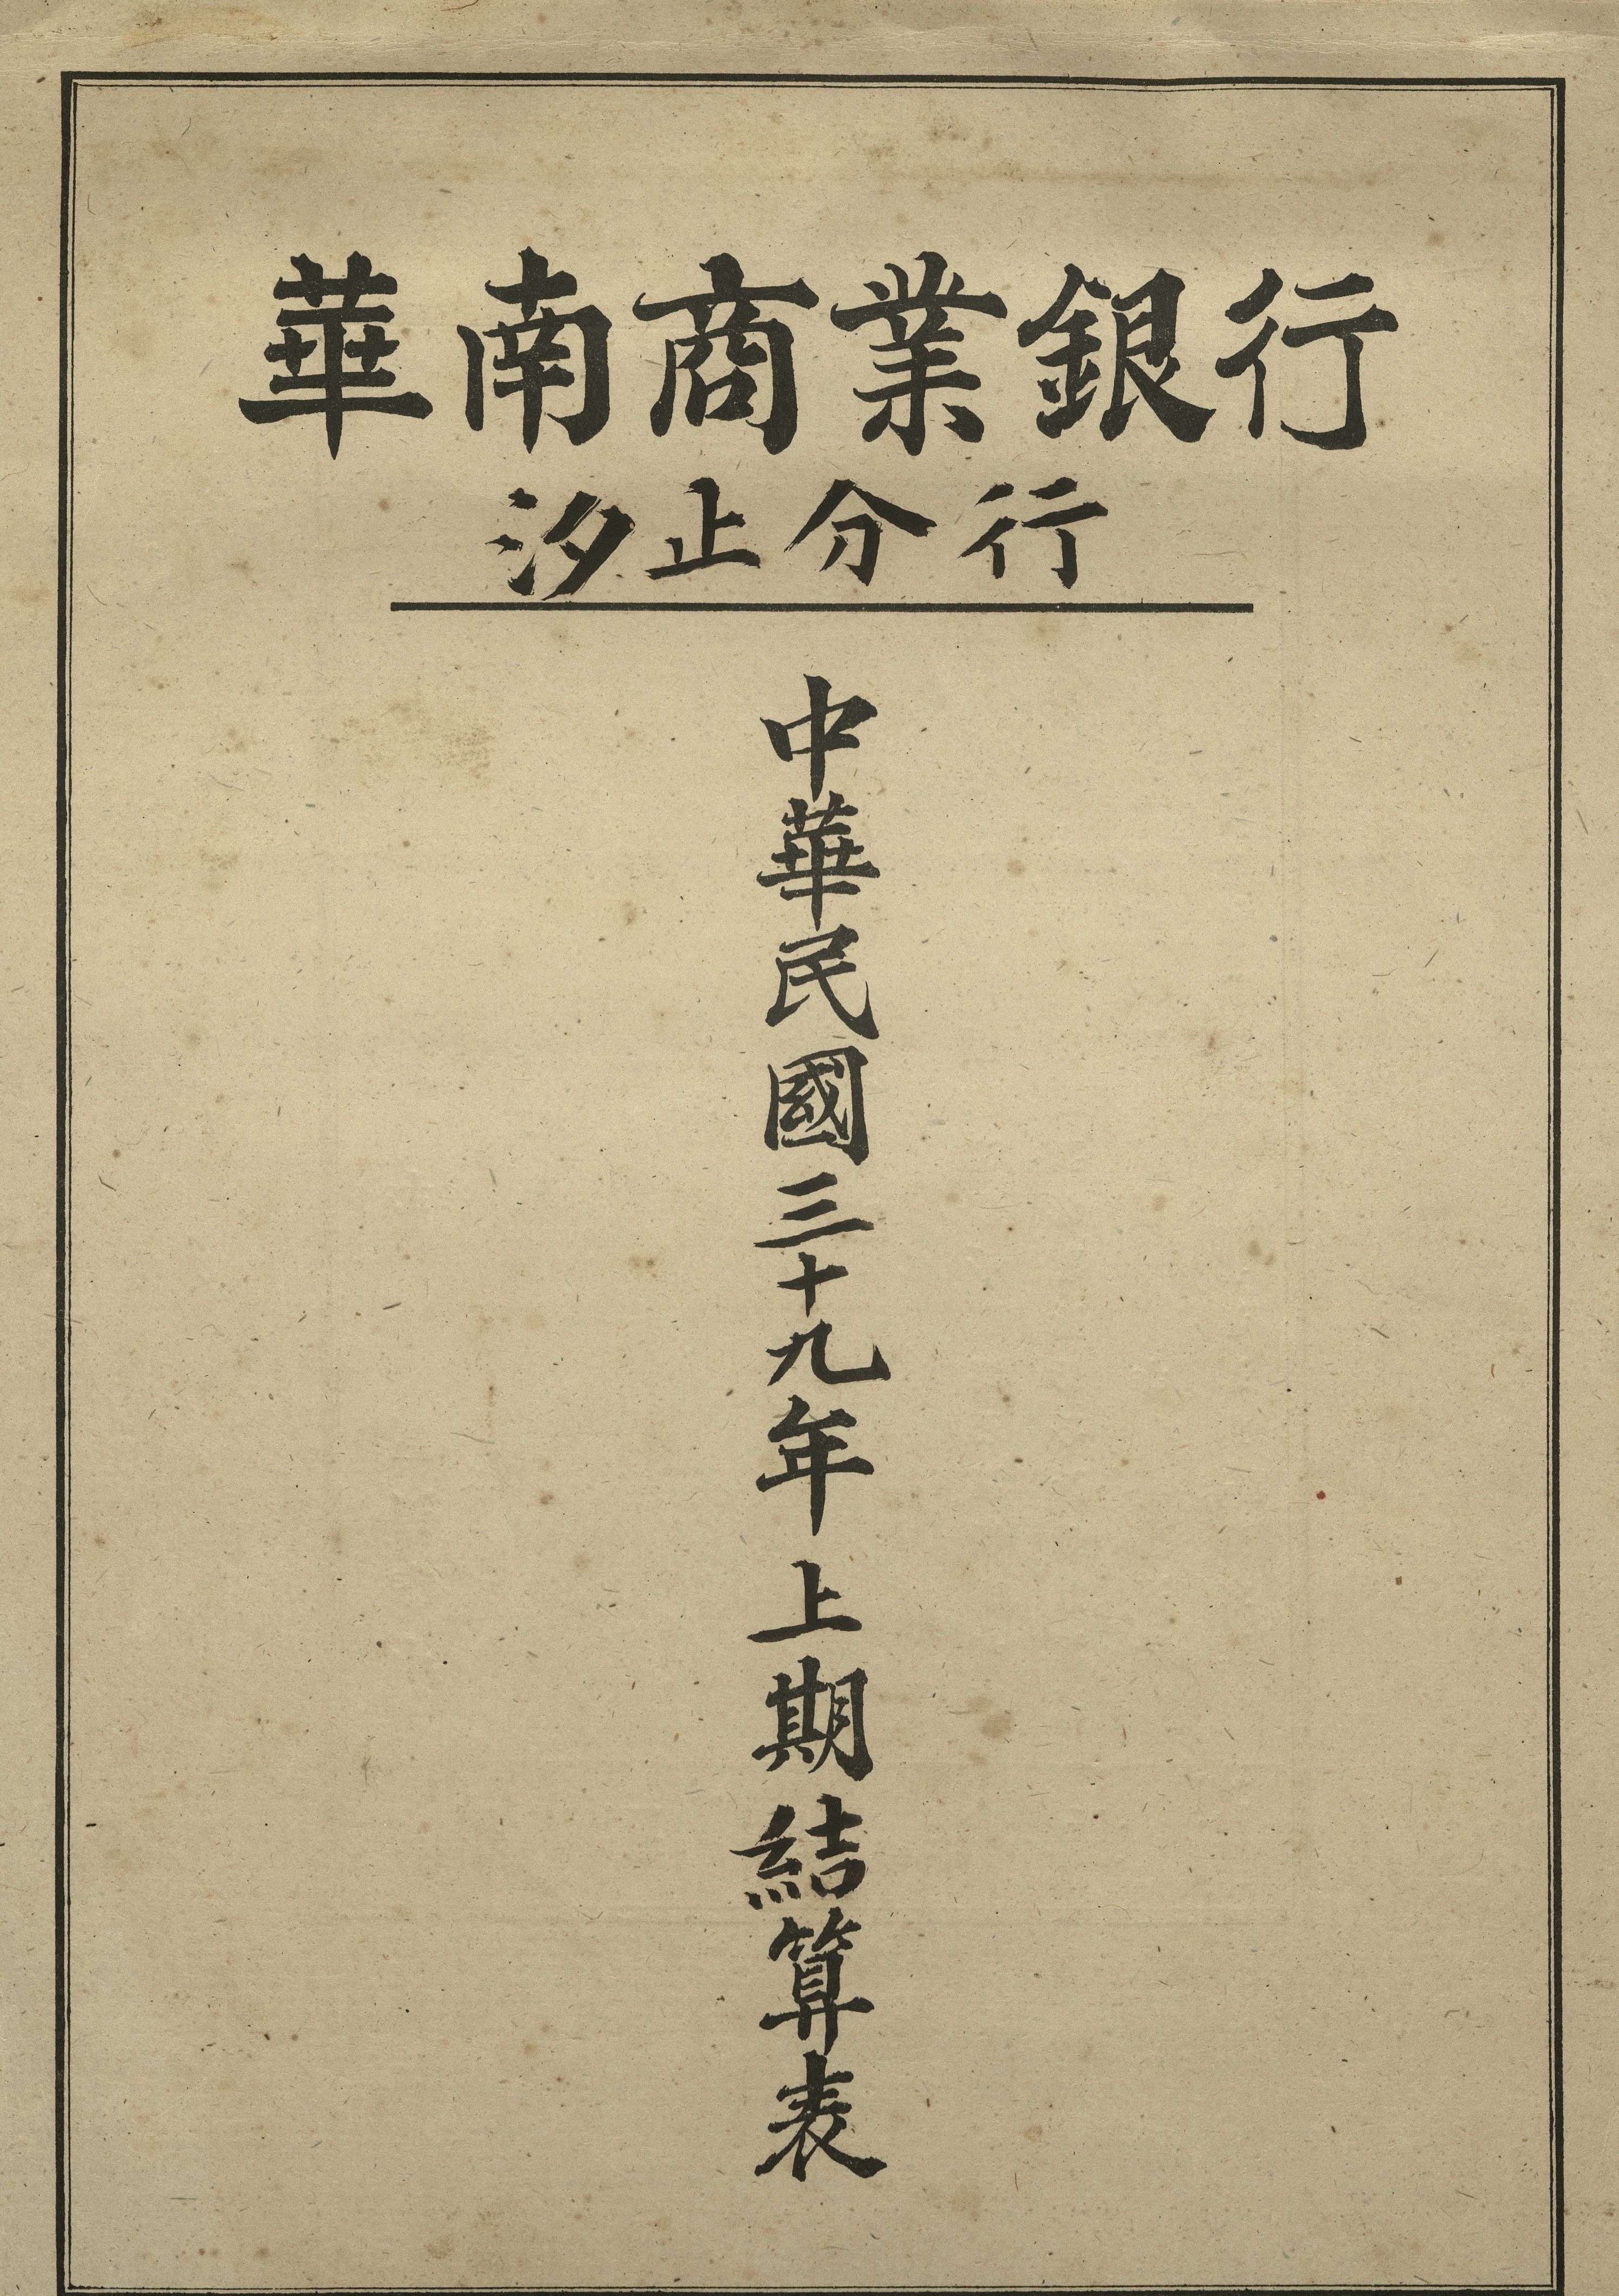 華南商業銀行
汐止分行
中華民國三十九年上期結算表